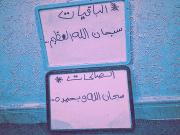 * الباقيات
سبحان الله العظيم
* الصالحات
سبحان الله وبحمده